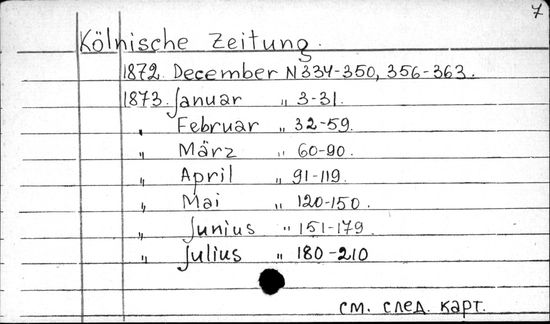 7
Kölnische Zeitung.
1872. December N 334-350, 356-363.
1873. Januar „ 3-31.
„ Februar „ 32-59.
„ März „ 60-90.
„ April „ 91-119.
„ Mai „ 120-150.
„ Junius „ 151-179.
„ Julius „ 180-210
см. след. карт.